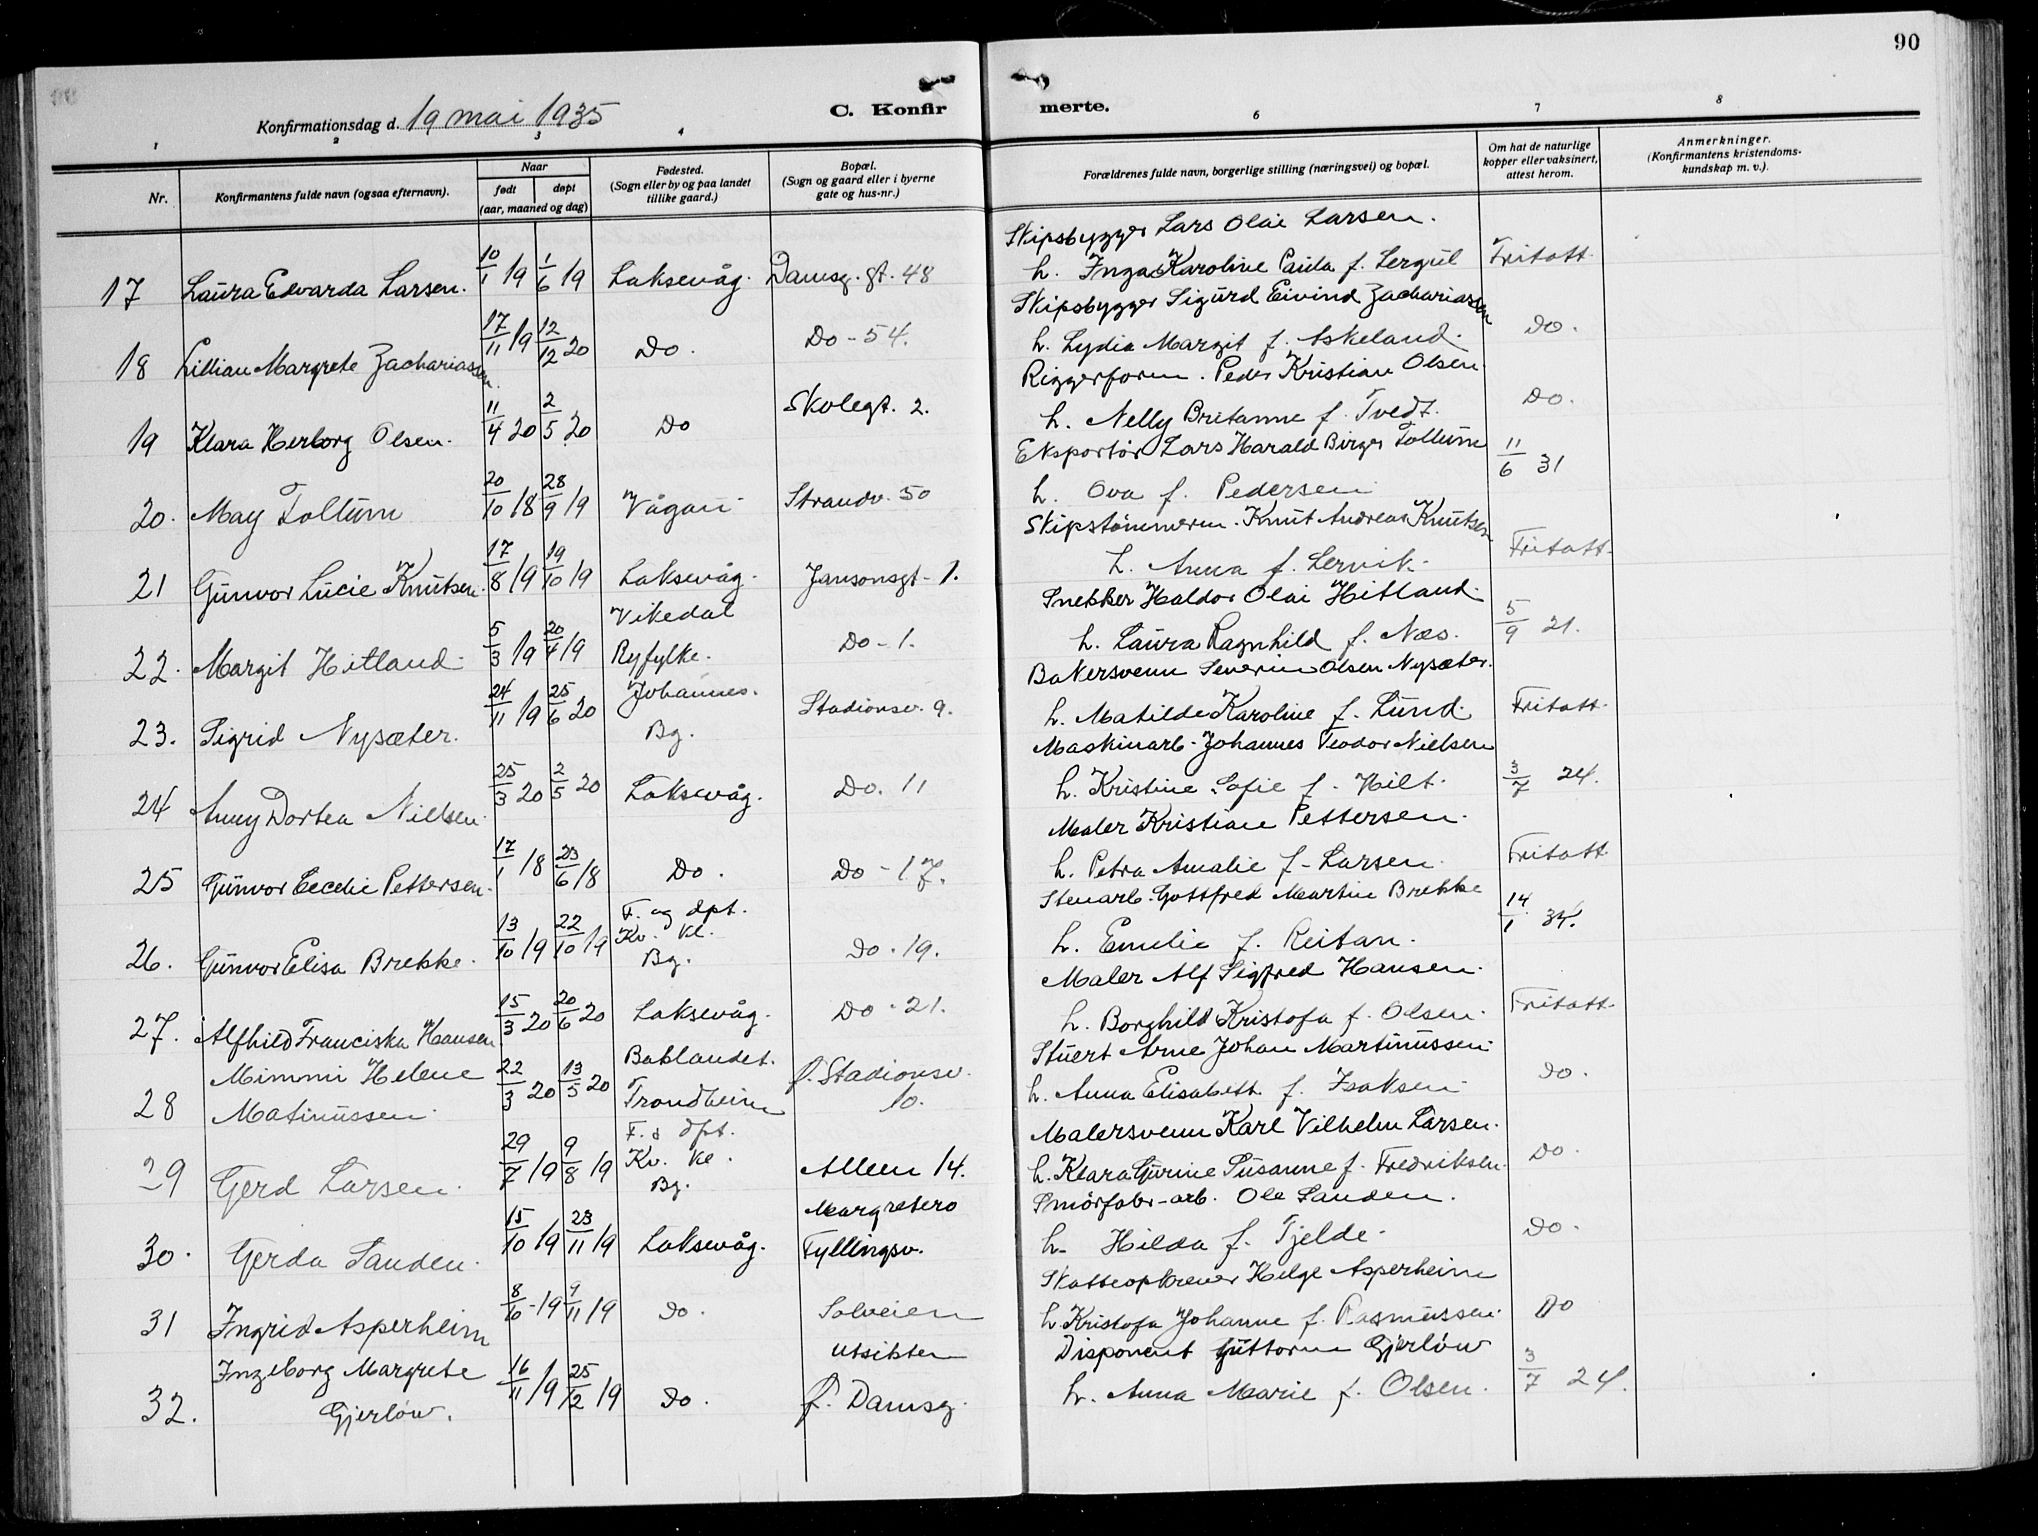 90
Konfirmationsdag d. 19 mai 1935
C. Konfirmerte.
1 2 3 4 6 7 8
Nr. Konfirmantens fulde navn (ogsaa efternavn). Naar født døpt (aar, maaned og dag) Fødested. (Sogn eller by og paa landet tillike gaard.) Bopæl. (Sogn og gaard eller i byerne gate og hus-nr.) Forældrenes fulde navn, borgerlige stilling (næringsvei) og bopæl. Om hat de naturlige kopper eller vaksinert, attest herom. Anmerkninger. (Konfirmantens kristendomskundskap m. v.).
Skipsbygger Lars Olai Larsen.
17 Laura Edvarda Larsen. 10/1 19 1/6 19 Laksevåg. Damsg. gt. 48 h. Inga Karoline Paula f. Lergul Fritatt
Skipsbygger Sigurd Eivind Zachariassen
18 Lillian Margrete Zachariassen. 17/11 19 12/12 20 Do. Do - 54. h. Lydia Margit f. Askeland. Do.
Riggerform. Peder Kristian Olsen
19 Klara Herborg Olsen. 11/4 20 2/5 20 Do Skolegt. 2. h. Nelly Britanne f. Tvedt. Do.
Eksportør Lars Harald Birger Tollum
20. May Tollum 20/10 18 28/9 19 Vågan Strandv. 50 h. Ova f. Pedersen 11/6 31
Skipstømmerm. Knut Andreas Knutsen
21 Gunvor Lucie Knutsen. 17/8 19 19/10 19 Laksevåg. Jansonsgt - 1. h. Anna f. Lervik. Fritatt.
Snekker Haldor Olai Hitland.
22. Margit Hitland. 5/3 19 20/4 19 Vikedal Ryfylke. Do - 1. h. Laura Ragnhild f. Næs. 5/9 21.
Bakersvenn Severin Olsen Nysæter.
23. Sigrid Nysæter. 24/11 19 25/6 20 Johannes. Bg. Stadionsv. 9. h. Matilde Karoline f. Lund. Fritatt.
Maskinarb. Johannes Teodor Nielsen
24 Anny Dortea Nielsen. 25/3 20 2/5 20 Laksevåg. Do. 11 h. Kristine Sofie f. Hilt. 3/7 24.
Maler Kristian Pettersen.
25 Gunvor Cecelie Pettersen. 17/1 18 23/6 18 Do. Do - 17. h. Petra Amalie f. Larsen. Fritatt
Stenarb. Gottfred Martin Brekke
26. Gunvor Elisa Brekke. 13/10 19 22/10 19 F. og dpt. Kv. kl. Bg. Do. 19. h. Emelie f. Reitan. 14/1 34.
Maler Alf Sigfred Hansen.
27. Alfhild Franciska Hansen 15/3 20 20/6 20 Laksevåg. Do - 21. h. Borghild Kristofa f. Olsen. Fritatt.
Stuert Arne Johan Martinussen.
28 Mimmi Helene Matinussen. 22/3 20 13/5 20 Baklandet. Trondheim f. Stadionsv. 10. h. Anna Elisabeth f. Isaksen Do.
Malersvenn Karl Vilhelm Larsen.
29 Gerd Larsen. 29/7 19 9/8 19 F. & dpt. Kv. kl. Bg. Alleen 14. h. Klara Gurine Susanne f. Fredriksen. Do.
Smørfabr-arb. Ole Sanden.
30. Gerda Sanden. 15/10 19 23/11 19 Laksevåg. Margretero Fyllingsv. h. Hilda f. Tjelde. Do.
Skatteopkrever Helge Asperheim
31 Ingrid Asperheim 8/10 19 9/11 19 Do. Solveien h. Kristofa Johanne f. Rasmussen. Do
Disponent Guttorm Gjerløw
32. Ingeborg Margrete Gjerløw. 16/11 19 25/12 19 Do. Utsikten f. Damsg. h. Anna Marie f. Olsen. 3/7 24.